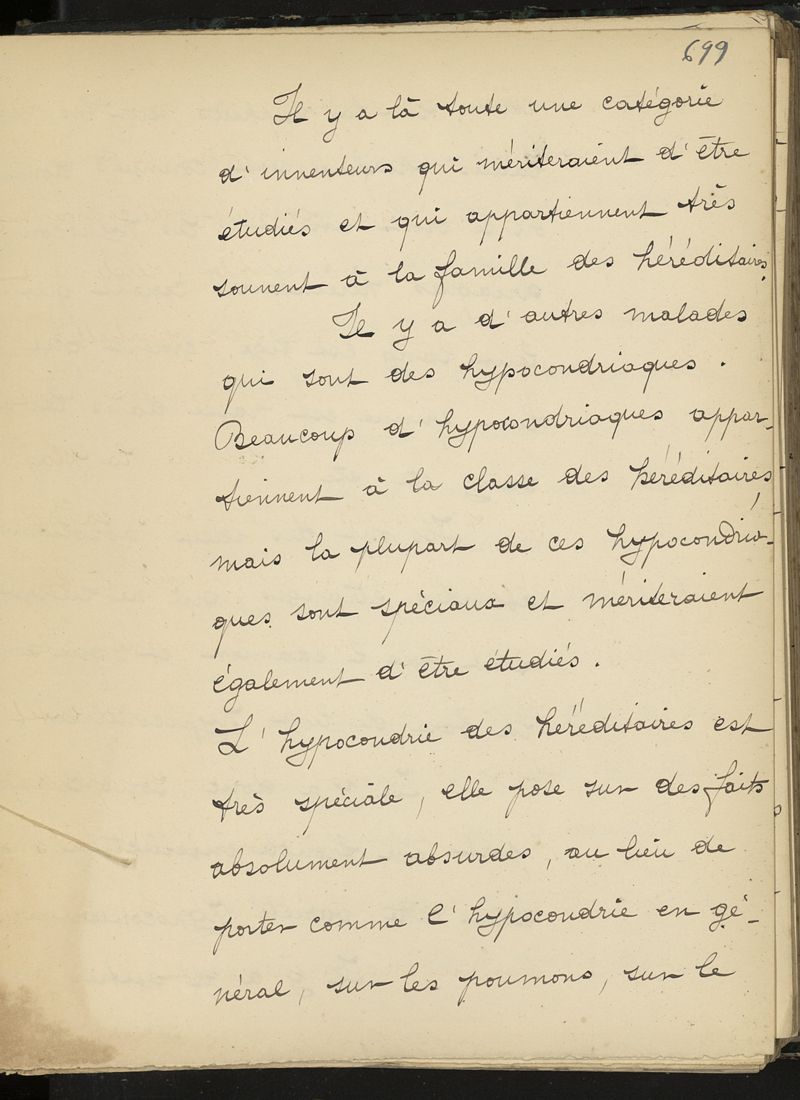 699
Il y a là toute une catégorie
d'inventeurs qui mériteraient d'être
étudiés et qui appartiennent très
souvent à la famille des héréditaires.
Il y a d'autres malades
qui sont des hypocondriaques.
Beaucoup d'hypocondriaques appar-
tiennent à la classe des héréditaires,
mais la plupart de ces hypocondria-
ques sont spéciaux et mériteraient
également d'être étudiés.
L'hypocondrie des héréditaires est
très spéciale, elle pose sur des faits
absolument absurdes, au lieu de
porter comme l'hypocondrie en gé-
néral, sur les poumons, sur le